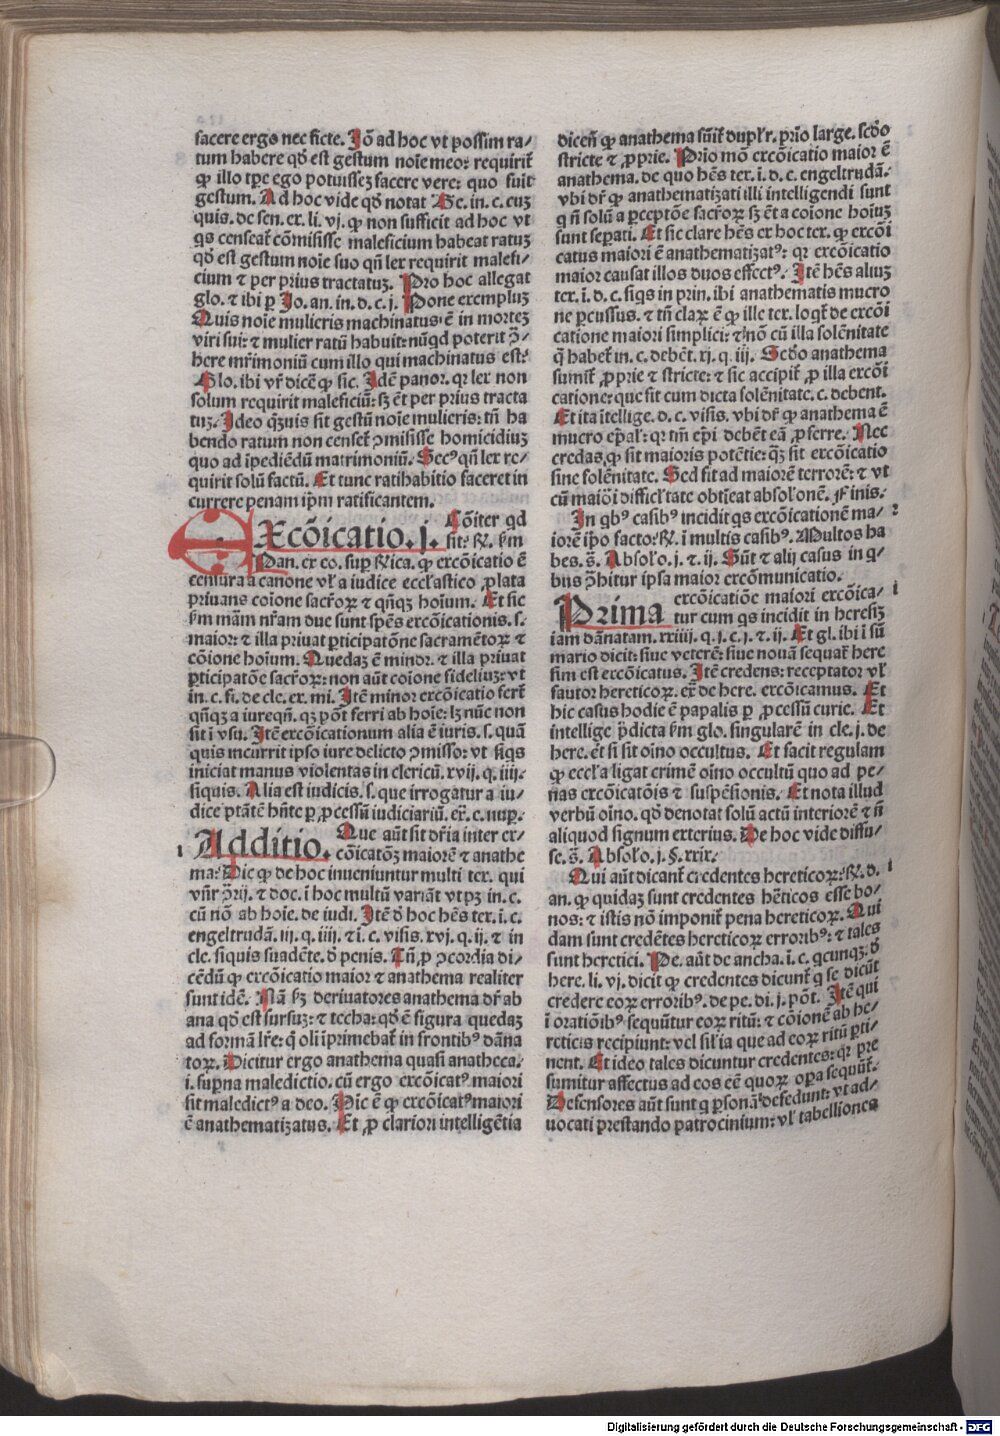 facere ergo nec ficte. Jō ad hoc vt possim ra/
tum habere qđ est gestum noīe meo: requiriť
ꝙ illo tꝑe ego potuissꝫ facere vere: quo fuit
gestum. Ad hoc vide qđ notat Ge. in. c. cuꝫ
quis. de sen. ex. li. vj. ꝙ non sufficit ad hoc vt
qs censeať cōmisisse maleficium habeat ratuꝫ
qđ est gestum noīe suo qñ lex requirit malefi/
cium ⁊ per prius tractatuꝫ. Pro hoc allegat
glo. ⁊ ibi ꝑ Jo. an. in. d. c. j. Pone exempluꝫ
Quis noīe mulieris machinatus ē in morteꝫ
viri sui: ⁊ mulier ratū habuit: nūqd poterit ꝯ/
here mr̄imoniū cum illo qui machinatus est:
Glo. ibi vr̄ dicē ꝙ sic. Idē panor. qꝛ lex non
solum requirit maleficiū: sꝫ ēt per prius tracta
tuꝫ. Ideo q̄ꝫuis sit gestū noīe mulieris: tñ ha
bendo ratum non censeť ꝯmisisse homicidiuꝫ
quo ad īpediēdū matrimoniū. Secꝰ qñ lex re/
quirit solū factū. Et tunc ratihabitio faceret in
currere penam ip̄m ratificantem.
Excōicatio. j. Cōiter qd
sit: ꝶ. ẜm
Pan. ex eo. suꝑ ꝶica. ꝙ excōicatio ē
censura a canone vł a iudice eccłastico ꝓlata
priuans coīone sacr̄oꝝ ⁊ qñqꝫ hoīum. Et sic
ẜm mām nr̄am due sunt spēs excōicationis. s.
maior: ⁊ illa priuat ꝑticipatōne sacramētoꝝ ⁊
cōione hoīum. Quedaꝫ ē minor. ⁊ illa priuat
ꝑticipatōe sacr̄oꝝ: non aūt coīone fideliuꝫ: vt
in. c. fi. de cle. ex. mi. Itē minor excōicatio ferť
qñqꝫ a iure qñ. qꝫ pōt ferri ab hoīe: lꝫ nūc non
sit ī vsu. Itē excōicationum alia ē iuris. s. quā
quis incurrit ipso iure delicto ꝯmisso: vt siqs
iniciat manus violentas in clericū. xvij. q. iiij.
siquis. Alia est iudicis. s. que irrogatur a iu/
dice ptātē hñte ꝑ ꝓcessū iudiciariū. ex̄. c. nuꝑ.
1 Additio. Que aūt sit dr̄ia inter ex/
cōicatōꝫ maiorē ⁊ anathe
ma: Dic ꝙ de hoc inueniuntur multi tex. qui
vñr ꝯrij. ⁊ doc. ī hoc multū variāt vt pꝫ in. c.
cū nō ab hoīe. de iudi. Itē ꝺ hoc hēs tex. i. c.
engeltrudā. iij. q. iiij. ⁊ ī. c. visis. xvj. q. ij. ⁊ in
cle. siquis suadēte. ꝺ penis. Tñ ꝓ ꝯcordia di/
cēdū ꝙ excōicatio maior ⁊ anathema realiter
sunt idē. Nā ẜꝫ deriuatores anathema dr̄ ab
ana qđ est sursuꝫ: ⁊ techa: qđ ē figura quedaꝫ
ad formā lr̄e: q̄ oli īprimebať in frontibꝰ dāna
toꝝ. Dicitur ergo anathema quasi anatheca.
i. suꝑna maledictio. cū ergo excōicatꝰ maiori
sit maledictꝰ a deo. Hic ē ꝙ excōicatꝰ maiori
ē anathematizatus. Et ꝓ clariori intelligētia
dicen̄ ꝙ anathema sūit̄ dupłr. prīo large. scđo
stricte ⁊ ꝓprie. Prīo mō excōicatio maior ē
anathema. de quo hēs tex. i. d. c. engeltrudā.
vbi dr̄ ꝙ anathematizati illi intelligendi sunt
q ñ solū a ꝑceptōe sacr̄oꝝ sꝫ ēt a coīone hoīuꝫ
sunt seꝑati. Et sic clare hēs ex hoc tex. ꝙ excōi
catus maiori ē anathematizatꝰ: qꝛ excōicatio
maior causat illos duos effectꝰ. Itē hēs aliuꝫ
tex. i. d. c. siqs in prin. ibi anathematis mucro
ne ꝑcussus. ⁊ tñ claꝝ ē ꝙ ille tex. logť de excōi
catione maiori simplici: ⁊ nō cū illa solēnitate
q̄ habeť in. c. debēt. xj. q. iij. Scđo anathema
sumiť ꝓprie ⁊ stricte: ⁊ sic accipiť ꝓ illa excōi
catione: que sit cum dicta solēnitate. c. debent.
Et ita ītellige. d. c. visis. vbi dr̄ ꝙ anathema ē
mucro ep̄al: qꝛ tm̄ ep̄i debēt eā ꝓferre. Nec
credas, ꝙ sit maioris potētie: q̄ꝫ sit excōicatio
sine solēnitate. Sed sit ad maiorē terrorē: ⁊ vt
cū maiōi difficłtate obtīeat absołonē. Finis.
In qbꝰ casibꝰ incidit qs excōicationē ma/ 2
iorē ip̄o facto: ꝶ. ī multis casibꝰ. Multos ha
bes. s̄. Absoło. j. ⁊ ij. Sūt ⁊ alij casus in q/
bus ꝓhibitur ipsa maior excōmunicatio.
Prima excōicatiōe maiori excōica/ 1
tur cum qs incidit in heresiꝫ
iam dānatam. xxiiij. q. j. c. j. ⁊ ij. Et gl. ibi ī sū
mario dicit: siue veterē: siue nouā sequať here
sim est excōicatus. Itē credens: receptator vł
fautor hereticoꝝ. ex̄ de here. excōicamus. Et
hic casus hodie ē papalis ꝑ ꝓcessū curie. Et
intellige p̄dicta ẜm glo. singularē in cle. j. de
here. et si sit oīno occultus. Et facit regulam
ꝙ eccłā ligat crimē oīno occultū quo ad pe/
nas excōicatōis ⁊ suspēsionis. Et nota illud
verbū oīno. qđ denotat solū actū interiorē ⁊ ñ
aliquod signum exterius. De hoc vide diffu/
se. s̄. Absoło. j. §. xxix.
Qui aūt dicant̄ credentes hereticoꝝ: ꝶ. d. 1
an. ꝙ quidaꝫ sunt credentes hēticos esse bo/
nos: ⁊ istis nō imponiť pena hereticoꝝ. Qui
dam sunt credētes hereticoꝝ erroribꝰ: ⁊ tales
sunt heretici. Pe. aūt de ancha. i. c. qcunqꝫ. ꝺ
here. li. vj. dicit ꝙ credentes dicunť q se dicūt
credere eoꝝ erroribꝰ. de pe. di. j. pōt. Itē qui
ī oratiōibꝰ sequūtur eoꝝ ritū: ⁊ cōionē ab he/
reticis recipiunt: vel siłia que ad eoꝝ ritū ꝑti/
nent. Et ideo tales dicuntur credentes: qꝛ pre
sumitur affectus ad eos eē quoꝝ oꝑa sequūť.
Defensores aūt sunt q ꝑsonā defēdunt: vt ad/
uocati prestando patrocinium: vł tabelliones
Digitalisierung gefördert durch die Deutsche Forschungsgemeinschaft - DFG